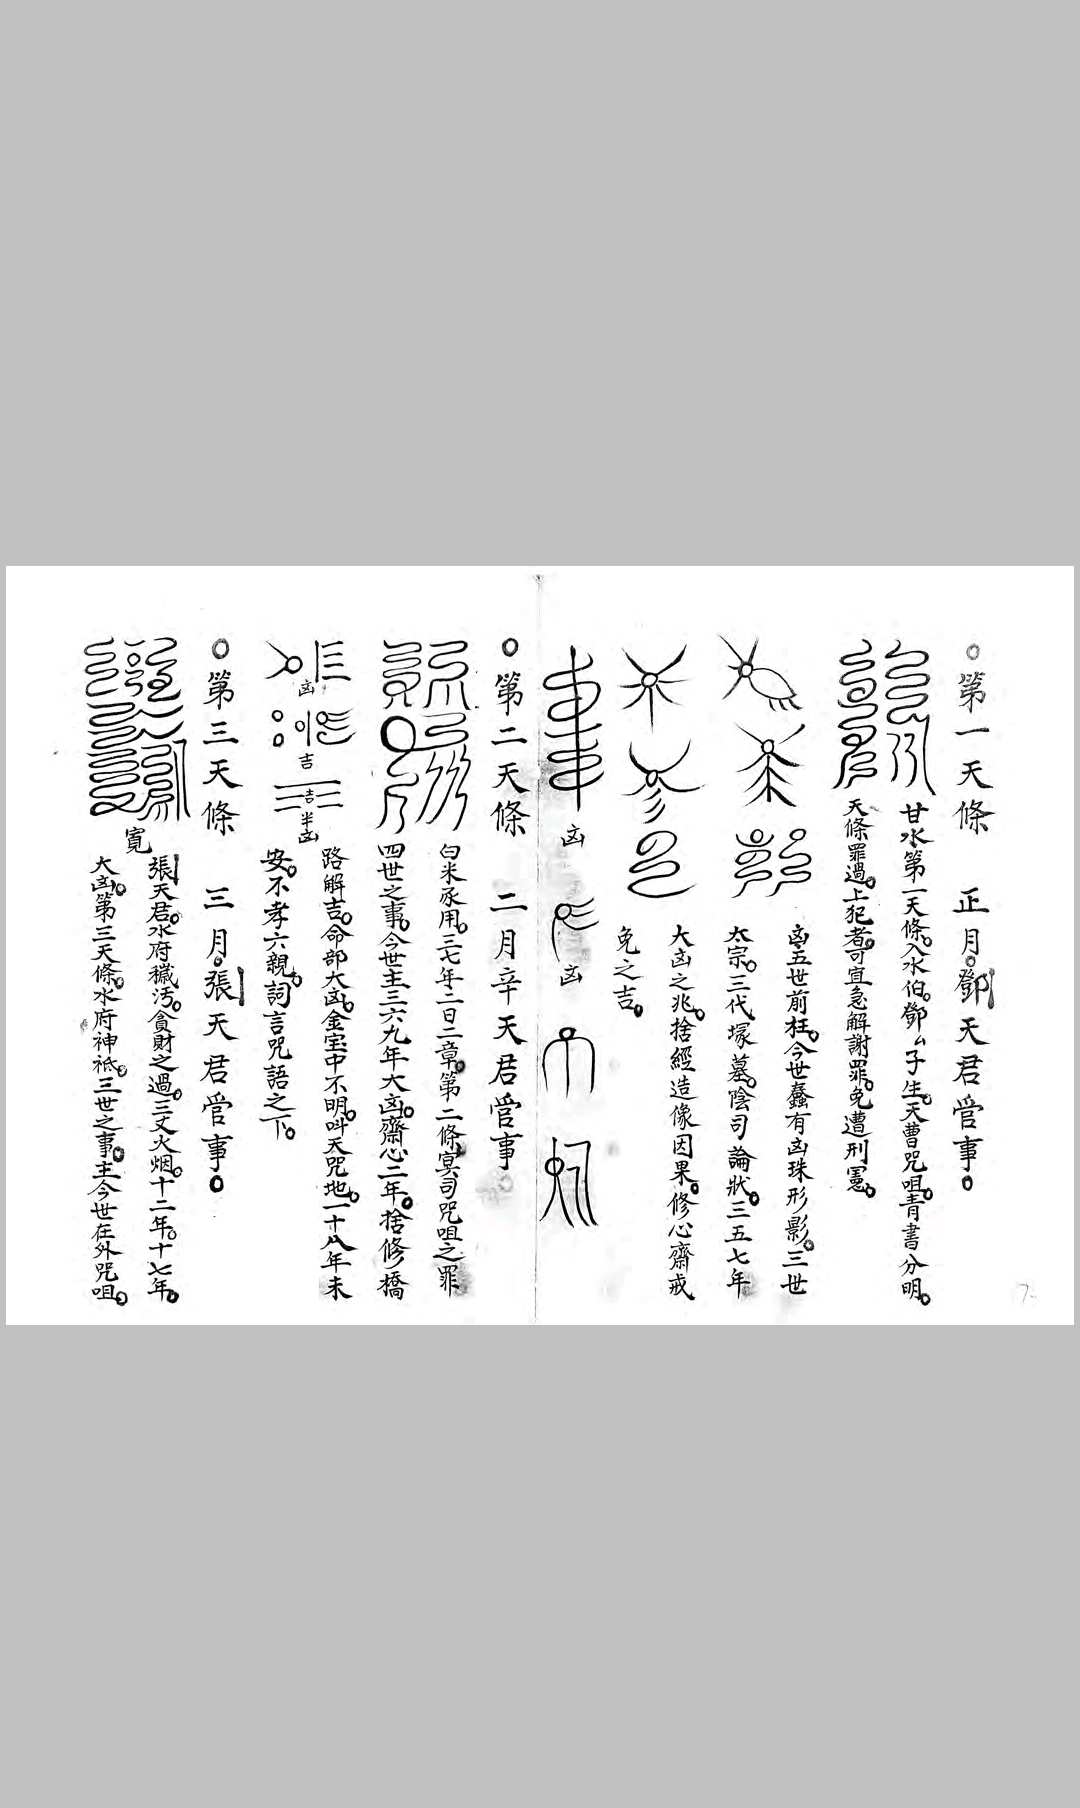 ○第一天條　正月。鄧天君管事。
甘水第一天條。入水伯。鄧厶子生。天曹咒咀。青書分明。
天條罪過。上犯者。可宜急解謝罪。免遭刑憲。
五世前枉。今世蠢有凶珠形影。三世
太宗。三代塚墓。陰司論狀。三五七年
大凶之兆。捨經造像因果。修心齋戒
免之吉。
凶
凶
○第二天條　二月辛天君管事。
白米承用。三七年二日二章。第二條冥司咒咀之罪
四世之事。今世主三六九年大凶。齋心二年。捨修橋
路解吉。命部大凶。金宝中不明。呌天咒地。一十八年未
安。不孝六親。詞言咒語之下。
凶
吉
吉
半凶
○第三天條　三月。張天君管事。
張天君。水府穢污。貪財之過。三丈火烟。十二年。十七年。
大凶。第三天條。水府神祇。三世之事。主今世在外咒咀。
寬